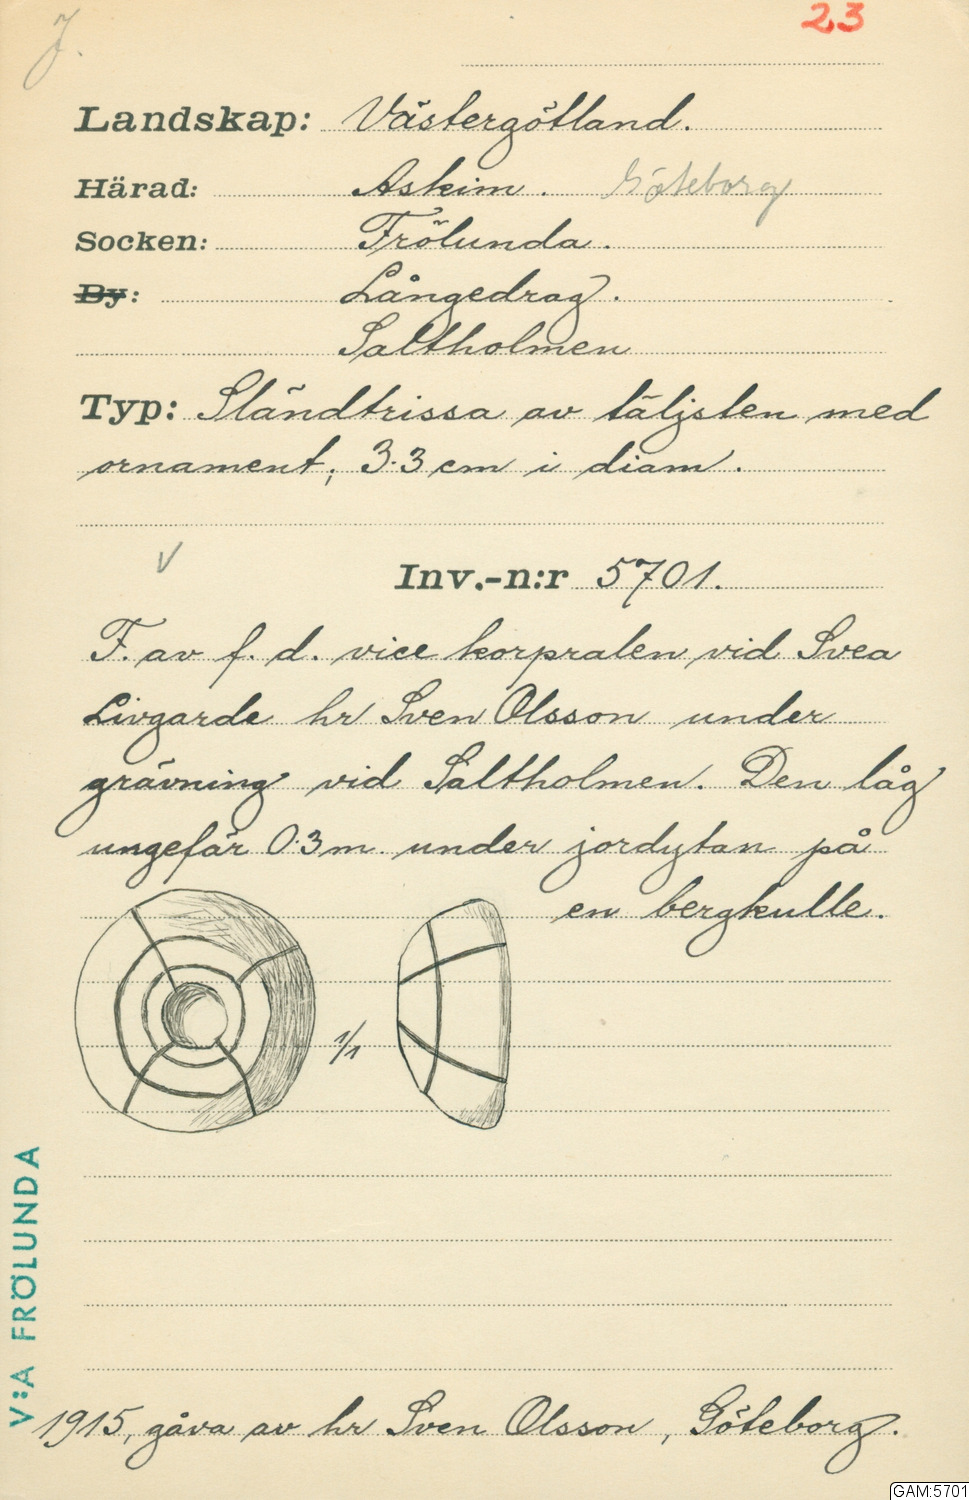 J.
23
Landskap: Västergötland.
Härad: Askim. Göteborg
Socken: Frölunda.
By: Långedrag.
Saltholmen
Typ: Sländtrissa av täljsten med
ornament; 3.3 cm i diam.
V
Inv.-n:r 5701.
F. av f. d. vice korpralen vid Svea
Livgarde hr Sven Olsson under
grävning vid Saltholmen. Den låg
ungefär 0.3 m under jordytan på
en bergkulle.
1/1
V:A FRÖLUNDA
1915, gåva av hr Sven Olsson, Göteborg.
GAM:5701